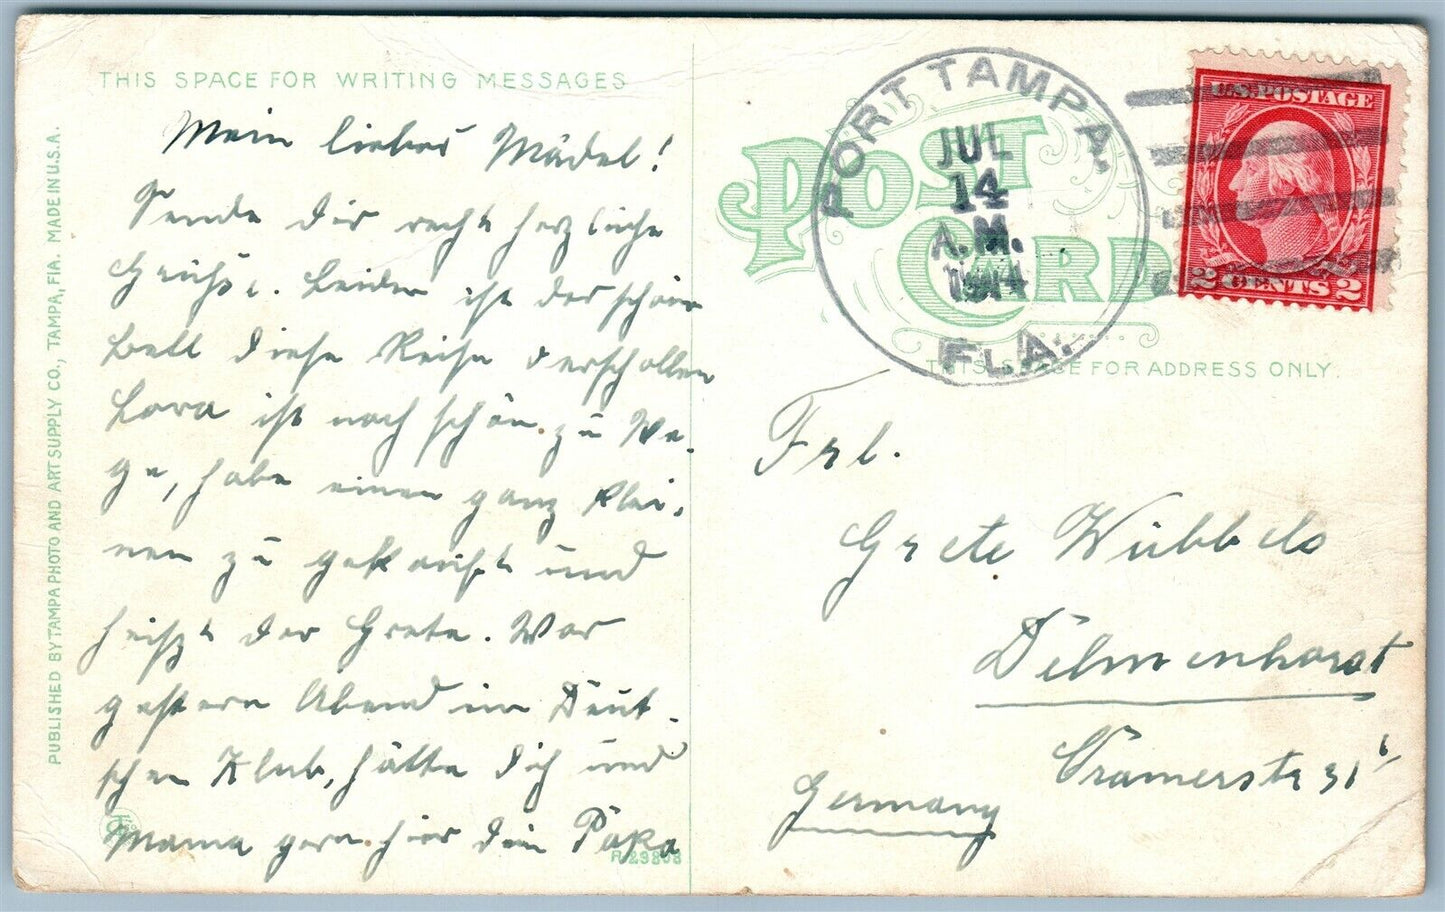 THIS SPACE FOR WRITING MESSAGES
Mein liebes Mädel!
Sende dir recht herzliche
Grüße. Leider ist der schöne
Ball diese Reise verschollen
Lora ist noch schön zu We-
ge, habe einen ganz klei-
nen zu gekauft und
heißt der Grete. War
gestern Abend im Deut-
schen Klub, hätte dich und
Mama gern hier dein Papa
R-29808
PUBLISHED BY TAMPA PHOTO AND ART SUPPLY CO., TAMPA, FLA. MADE IN U.S.A.
POST CARD
PORT TAMPA.
JUL
14
A.M.
1914
FLA.
U.S. POSTAGE
2 CENTS 2
THIS SPACE FOR ADDRESS ONLY.
Frl.
Grete Wübbels
Delmenhorst
Cramerstr 31
Germany